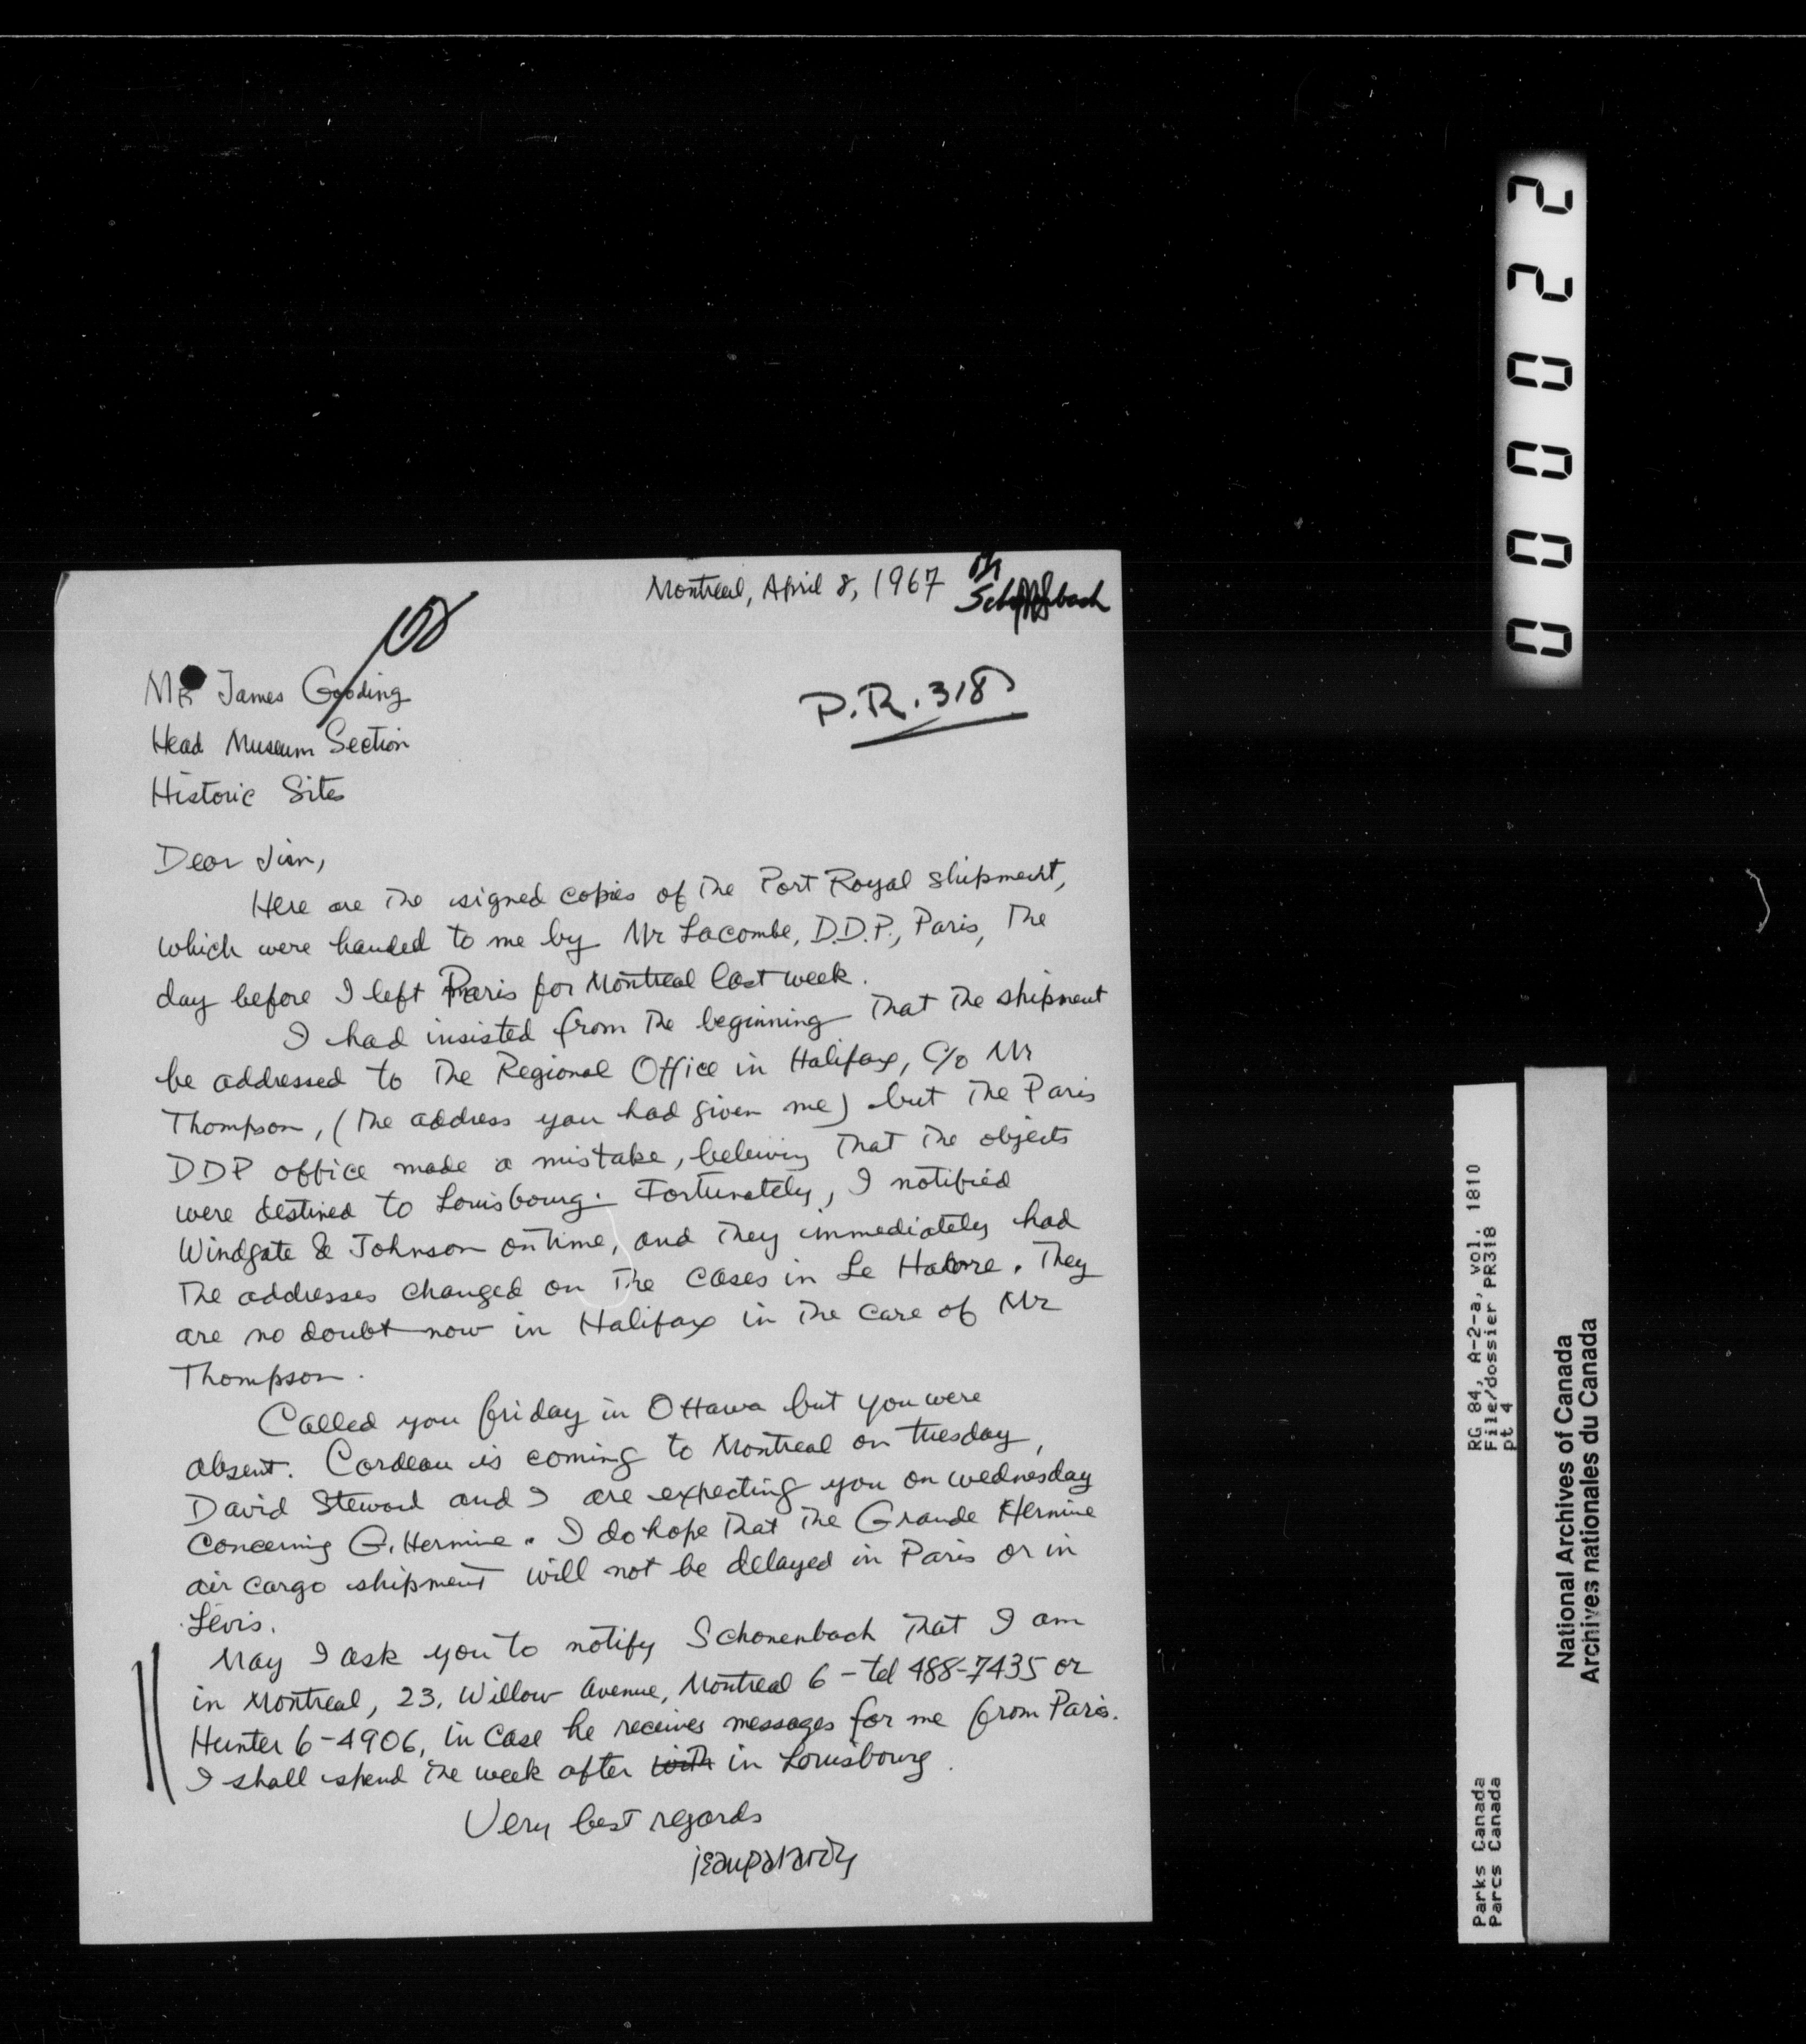 Montreal, April 8, 1967
P.R. 318
Mr James Gooding
Head Museum Section
Historic Sites
Dear Jim,
Here are the signed copies of the Port Royal shipment,
which were handed to me by Mr Lacombe, D.D.P., Paris, the
day before I left Paris for Montreal last week.
I had insisted from the beginning that the shipment
be addressed to the Regional Office in Halifax, c/o Mr
Thompson, (the address you had given me) but the Paris
DDP office made a mistake, beleiving that the objects
were destined to Louisbourg. Fortunately, I notified
Windgate & Johnson on time, and they immediately had
the addresses changed on the cases in Le Havre. They
are no doubt now in Halifax in the care of Mr
Thompson.
Called you friday in Ottawa but you were
absent. Cordeau is coming to Montreal on tuesday,
David Steward and I are expecting you on wednesday
concerning G. Hermine. I do hope that the Grande Hermine
air cargo shipment will not be delayed in Paris or in
Lévis.
May I ask you to notify Schonenbach that I am
in Montreal, 23, Willow avenue, Montreal 6 - tel 488-7435 or
Hunter 6-4906, in case he receives messages for me from Paris.
I shall spend the week after with in Louisbourg.
Very best regards
jeanpalardy
000022
RG 84, A-2-a, vol. 1810
File/dossier PR318
pt 4
Parks Canada
Parcs Canada
National Archives of Canada
Archives nationales du Canada